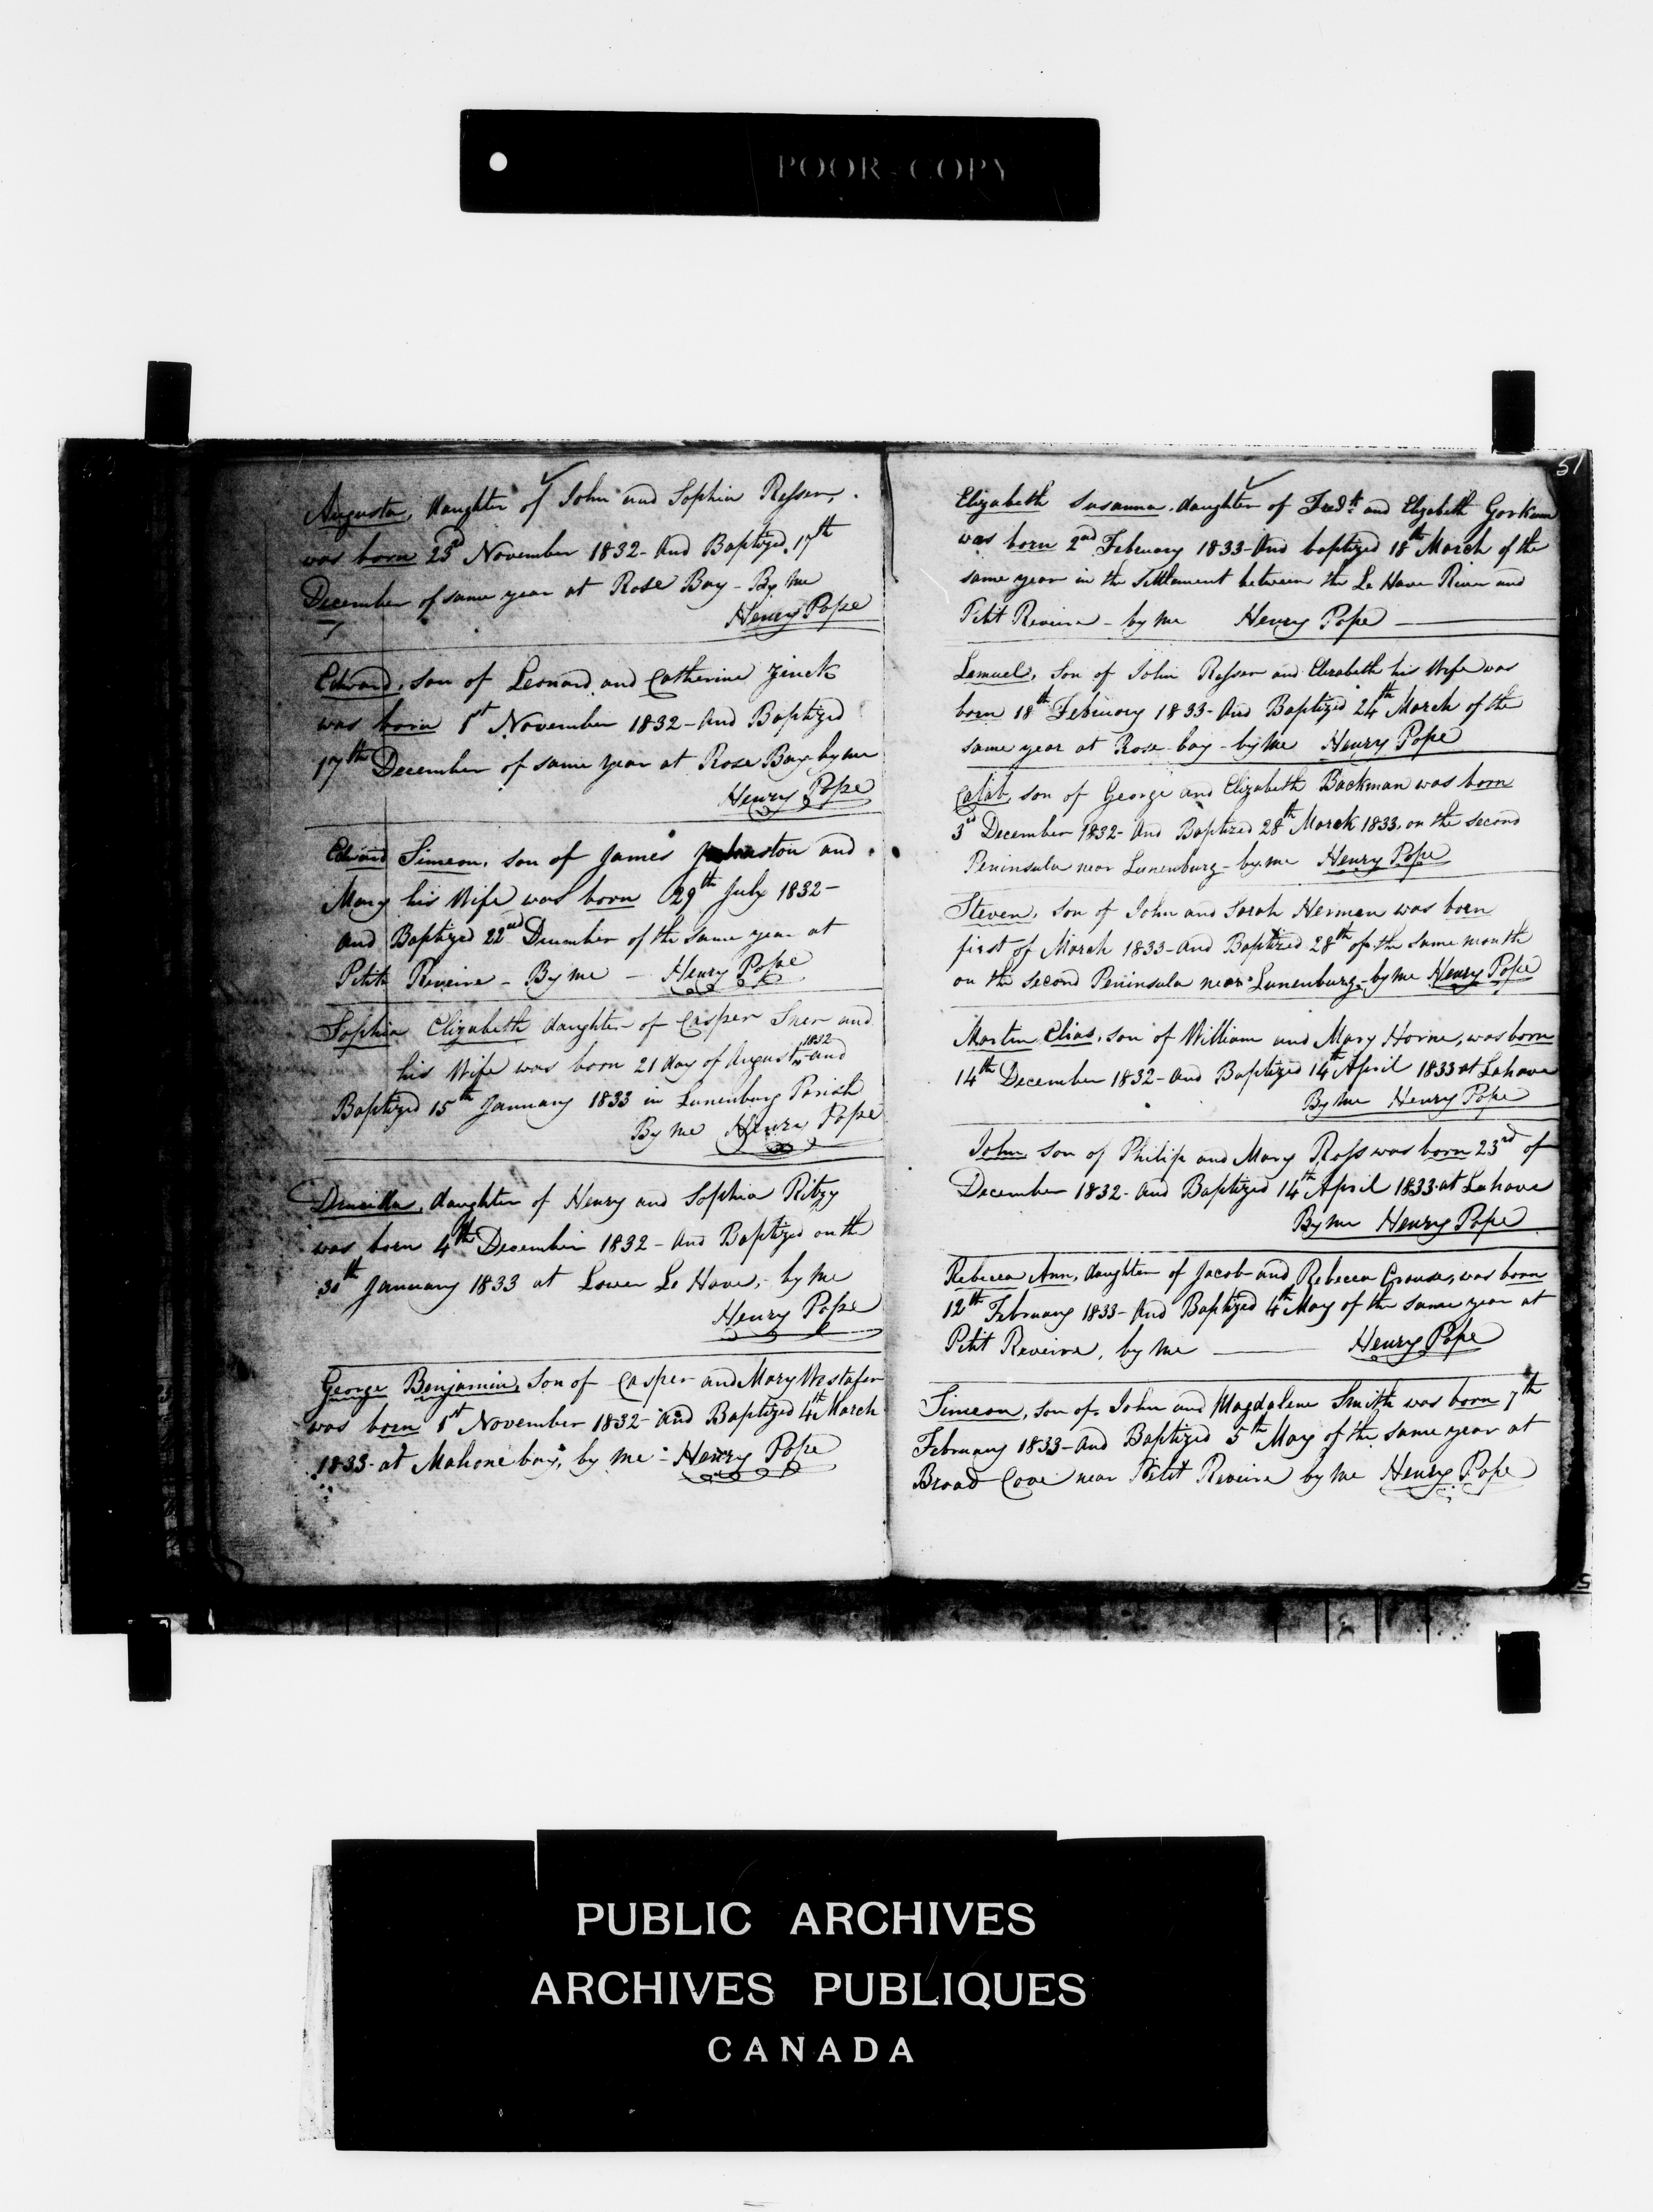 POOR-COPY
Augusta, daughter of John and Sophia Resser,
was born 23d November 1832 - And Baptized 17th
December of same year at Rose Bay - By Me
Henry Pope
Edward, son of Leonard and Catherine Zinck
was born 1st November 1832 - And Baptized
17th December of same year at Rose Bay by me
Henry Pope
Edward Simeon, son of James Johnston and
Mary his Wife was born 29th July 1832 -
And Baptized 22nd December of the same year at
Petite Reveire - By me - Henry Pope
Sophia Elizabeth daughter of Casper and
his Wife was born 21 day of August 1832 and
Baptized 15th January 1833 in Lunenburg Parish
By me Henry Pope
Druscilla, daughter of Henry and Sophia Ritzy
was born 4th December 1832 - And Baptized on the
30th January 1833 at Lower Le Have, - by Me
Henry Pope
George Benjamin, Son of Casper and Mary Westafer
was born 1st November 1832 - And Baptized 4th March
1833 - at Mahone bay, by me - Henry Pope
51
Elizabeth Susanna, daughter of Fredk and Elizabeth Gorkum
was born 2nd February 1833 - And baptized 18th March of the
same year in the Settlement between the Le Have River and
Petit Reveire - by me Henry Pope
Lemuel, Son of John Resser and Elizabeth his Wife was
born 18th February 1833 - And Baptized 24th March of the
same year at Rose bay - by Me Henry Pope
Calab, son of George and Elizabeth Backman was born
3rd December 1832 - And Baptized 28th March 1833, on the second
Peninsula near Lunenburg - by me Henry Pope
Steven, son of John and Sarah Herman was born
first of March 1833 - And Baptized 28th of the same month
on the second Peninsula near Lunenburg - by me Henry Pope
Martin Elias, son of William and Mary Horne, was born
14th December 1832 - And Baptized 14th April 1833 at Lahave
By me Henry Pope
John, Son of Philip and Mary Ross was born 23rd of
December 1832 - And Baptized 14th April 1833 at Lahave
By me Henry Pope
Rebecca Ann, daughter of Jacob and Rebecca Crouse, was born
12th February 1833 - And Baptized 4th May of the same year at
Petit Reveire, by me Henry Pope
Simeon, son of John and Magdalene Smith was born 7th
February 1833 - And Baptized 5th May of the same year at
Broad Cove near Petit Reveire by me Henry Pope
PUBLIC ARCHIVES
ARCHIVES PUBLIQUES
CANADA